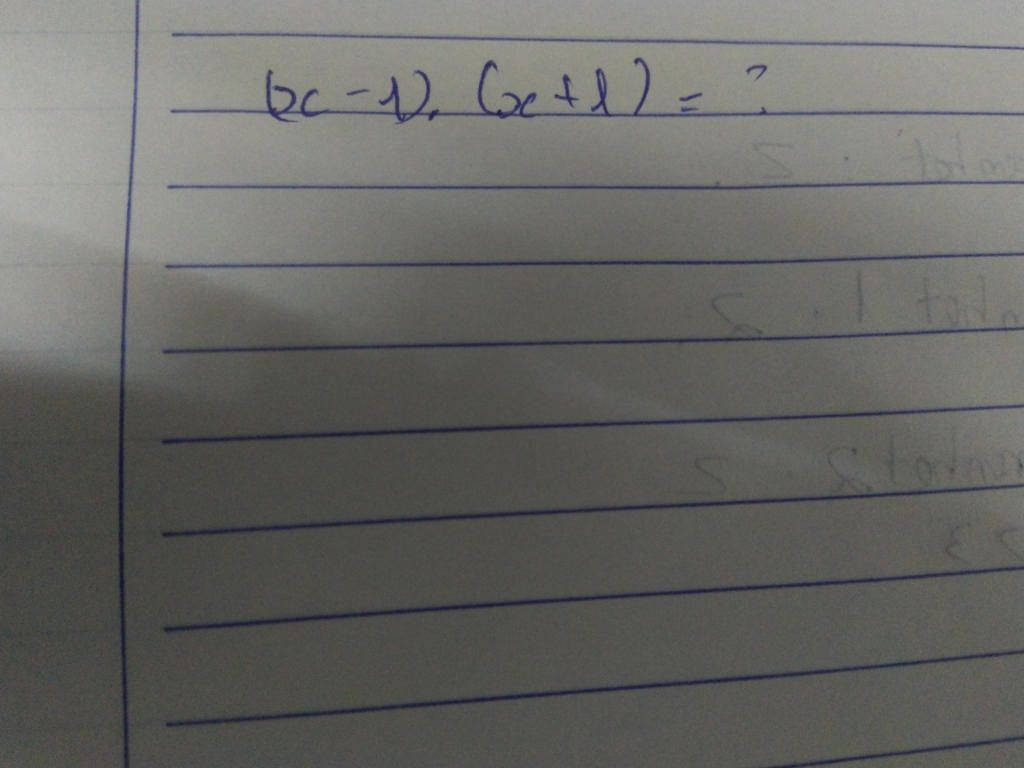 (x-1). (x+1) = ?